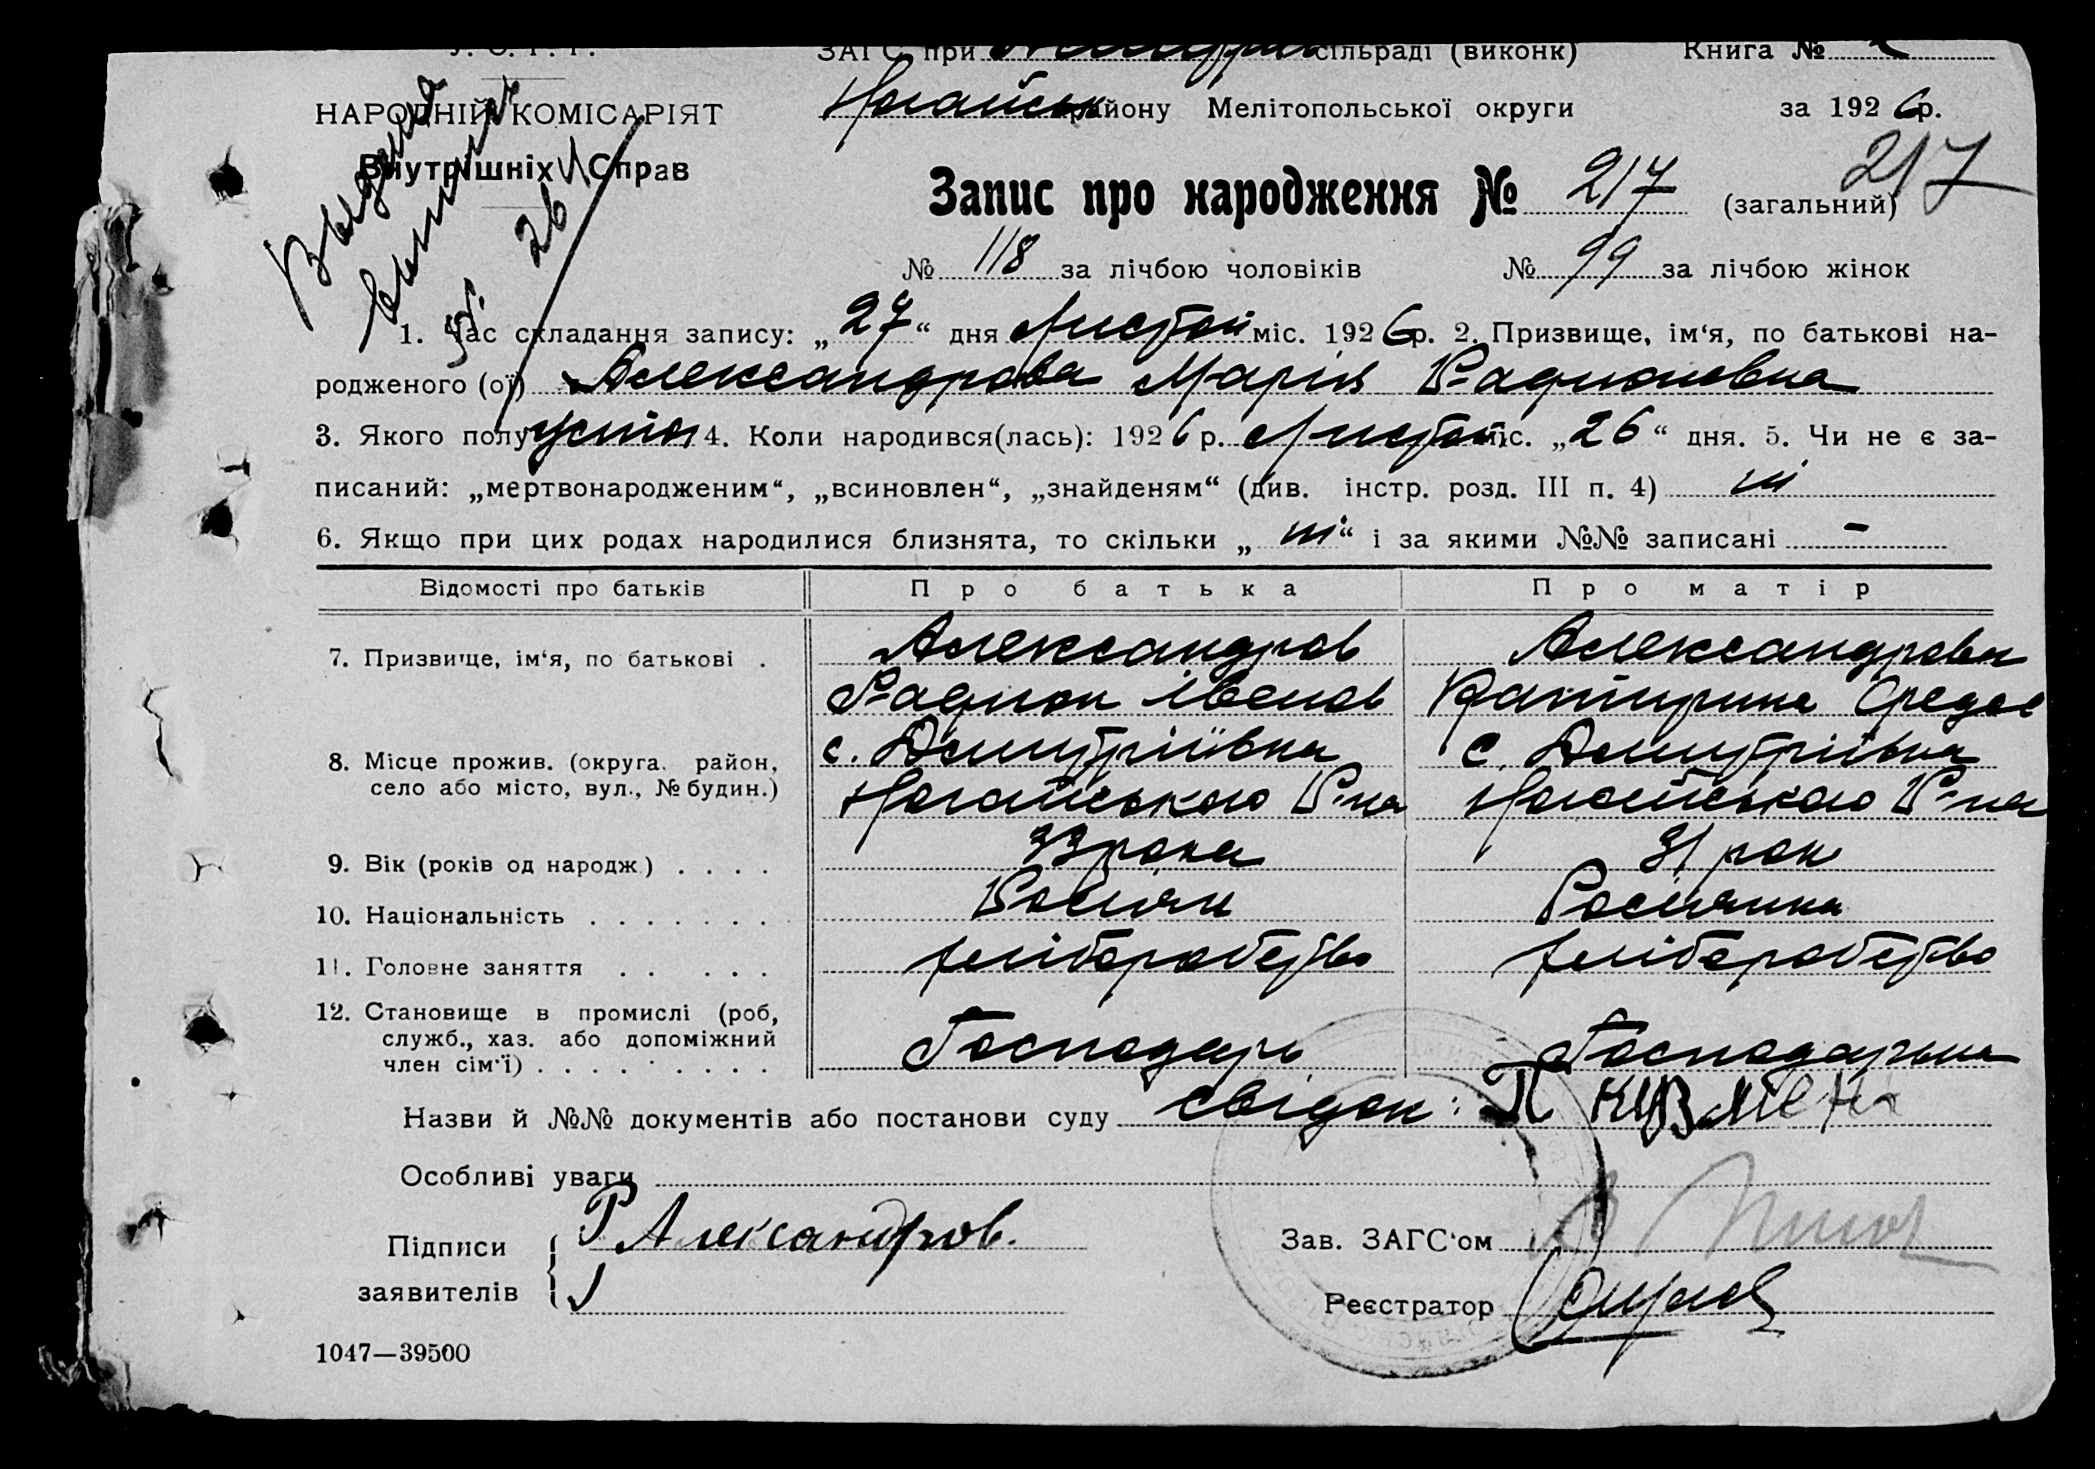 У. С. Р. Р.
ЗАГС при сільраді (виконк) Книга №
НАРОДНІЙ КОМІСАРІЯТ
Ногайськ району Мелітопольської округи за 1926 р.
Внутрішніх Справ
Выдана
26
Запис про народження № 217 (загальний) 217
№ 118 за лічбою чоловіків № 99 за лічбою жінок
1. Час складання запису: „27“ дня Листоп міс. 1926 р. 2. Призвище, ім‘я, по батькові на-
родженого (ої) Александрова Марія Радионовна
3. Якого полу 4. Коли народився(лась): 1926 р. Листоп міс. „26“ дня. 5. Чи не є за-
писаний: „мертвонародженим“, „всиновлен“, „знайденям“ (див. інстр. розд. III п. 4) ні
6. Якщо при цих родах народилися близнята, то скільки „ні“ і за якими №№ записані –
Відомості про батьків Про батька Про матір
7. Призвище, ім‘я, по батькові . Александров Александрова
Радион Иванов Катирина Федос
8. Місце прожив. (округа, район, с. Дмитріївка с. Дмитріївка
село або місто, вул., № будин.) Ногайського Р-на Ногайського Р-на
9. Вік (років од народж) . . . . 33 рока 31 рок
10. Національність . . . . . . . Росіян Росіянка
11. Головне заняття . . . . . хліборобство хліборобство
12. Становище в промислі (роб,
служб., хаз. або допоміжний Господарь Господарька
член сім‘ї) . . . . . . . . .
Назви й №№ документів або постанови суду свідок: П Кузмен
Особливі уваги
Підписи Р Александров. Зав. ЗАГС‘ом
заявителів Реєстратор
1047—39500